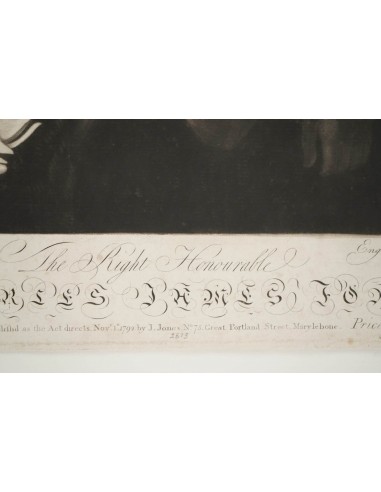 The Right Honourable
Eng
RLES JAMES FO
lish'd as the Act directs, Novr. 1st. 1792 by J. Jones No. 75 Great Portland Street, Marylebone. Price
2815